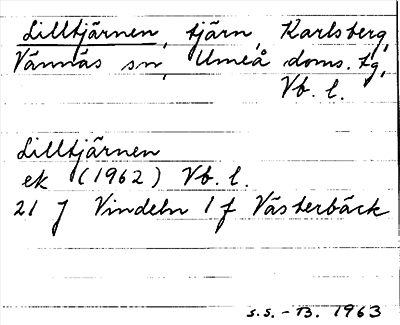 Lilltjärnen, tjärn, Karlsberg,
Vännäs sn, Umeå doms. tg,
Vb. l.
Lilltjärnen
ek (1962) Vb. l.
21 J Vindeln 1 f Västerbäck
S.S. - B. 1963